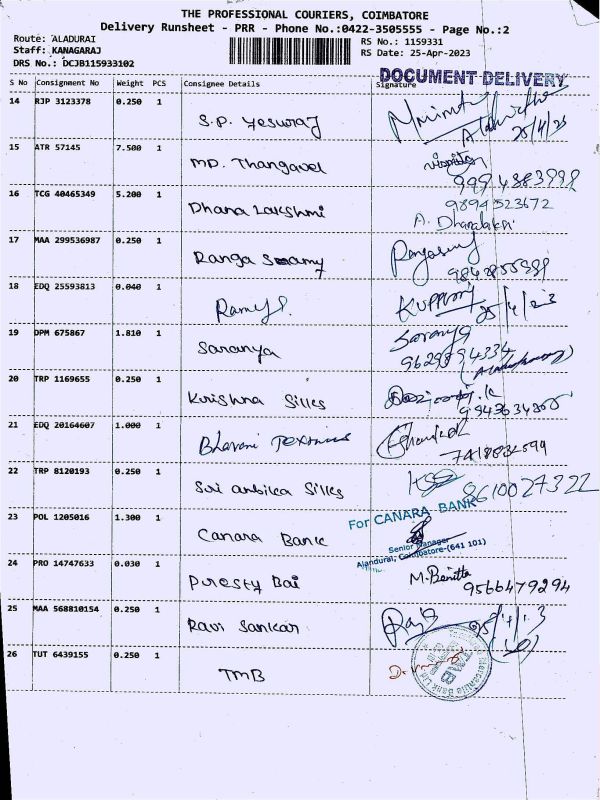 THE PROFESSIONAL COURIERS, COIMBATORE
Delivery Runsheet - PRR - Phone No.:0422-3505555 - Page No.:2
Route: ALADURAI
Staff: KANAGARAJ
DRS No.: DCJB115933102
RS No.: 1159331
RS Date: 25-Apr-2023
DOCUMENT DELIVERY
S No Consignment No Weight PCS Consignee Details Signature
14 RJP 3123378 0.250 1 S.P. Yesuraj
25/4/23
15 ATR 57145 7.500 1 MD. Thangavel
9994883998
16 TCG 40465349 5.200 1 Dhana Lakshmi
9894523672
A. Dhanalakshmi
17 MAA 299536987 0.250 1 Ranga Swamy
18 EDQ 25593813 0.040 1
25/4/23
19 DPM 675867 1.810 1 Saranya Saranya
9629894334
20 TRP 1169655 0.250 1 Krishna Silks
21 EDQ 20164607 1.000 1 Bhavani
22 TRP 8120193 0.250 1 Sri ambika Silks
8610027322
23 POL 1205016 1.300 1 Canara Bank
For CANARA BANK
Senior Manager
Alandurai, Coimbatore-(641 101)
24 PRO 14747633 0.030 1 Bai
M. Benitta
9566479294
25 MAA 568810154 0.250 1 Ravi Sankar
26 TUT 6439155 0.250 1 TMB